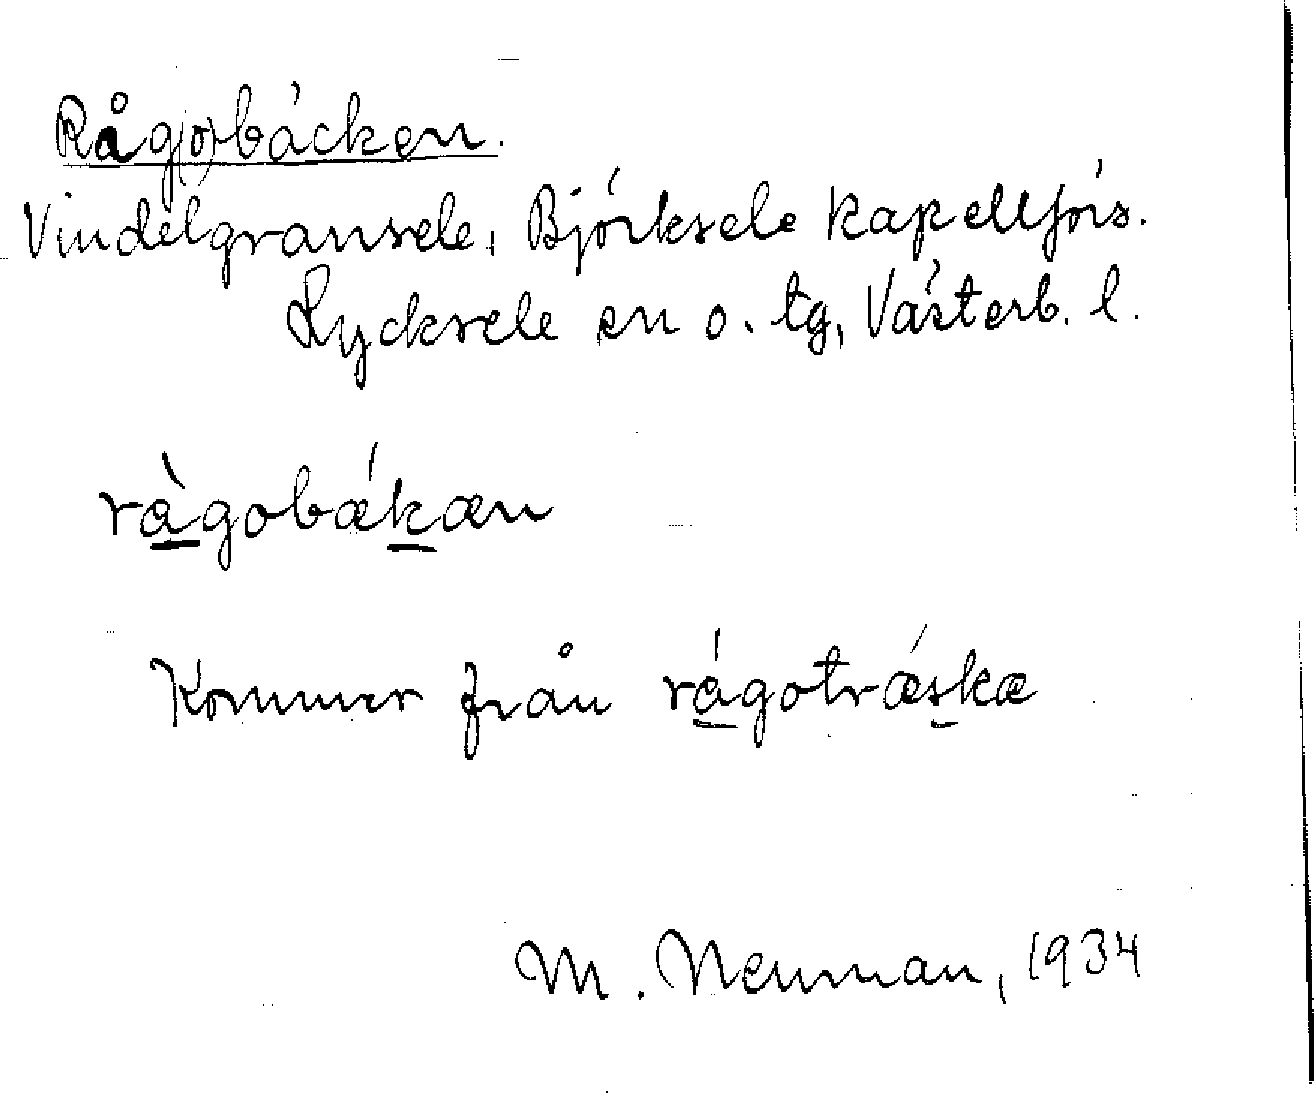 Råg(o)bäcken.
Vindelgransele, Björksele kapellförs.
Lycksele sn o. tg, Västerb. l.
ràgobǽkæn
Kommer från rágotrǽskæ
M. Neuman, 1934